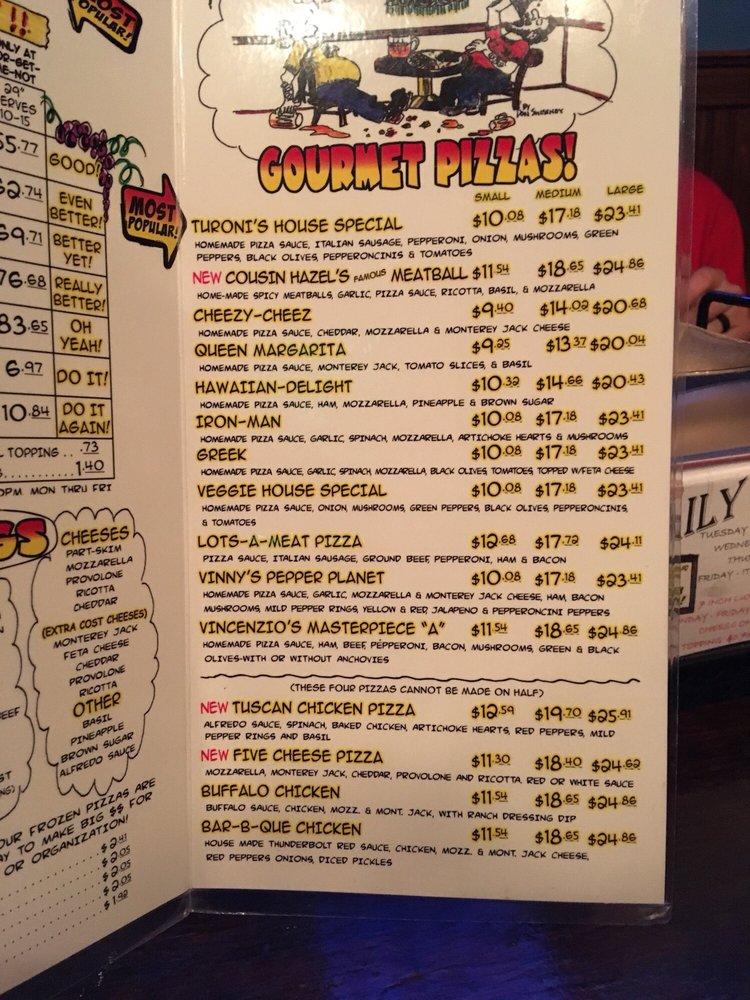 MOST
POPULAR!
!!
ONLY AT
29"
10-15
GOOD!
2.74
EVEN
BETTER!
9.71
BETTER
YET!
76.68
REALLY
BETTER!
83.65
OH
YEAH!
6.97
DO IT!
10.84
DO IT
AGAIN!
TOPPING .. .73
1.40
MON THRU FRI
CHEESES
PART-SKIM
MOZZARELLA
PROVOLONE
RICOTTA
CHEDDAR
(EXTRA COST CHEESES)
MONTEREY JACK
FETA CHEESE
CHEDDAR
PROVOLONE
RICOTTA
OTHER
BASIL
PINEAPPLE
BROWN SUGAR
ALFREDO SAUCE
OUR FROZEN PIZZAS ARE
TO MAKE BIG $$ FOR
OR ORGANIZATION!
$2.41
$2.05
$2.05
$1.92
GOURMET PIZZAS!
SMALL MEDIUM LARGE
MOST
POPULAR!
TURONI'S HOUSE SPECIAL $10.08 $17.18 $23.41
HOMEMADE PIZZA SAUCE, ITALIAN SAUSAGE, PEPPERONI, ONION, MUSHROOMS, GREEN
PEPPERS, BLACK OLIVES, PEPPERONCINIS & TOMATOES
NEW COUSIN HAZEL'S FAMOUS MEATBALL $11.54 $18.65 $24.86
HOME-MADE SPICY MEATBALLS, GARLIC, PIZZA SAUCE, RICOTTA, BASIL, & MOZZARELLA
CHEEZY-CHEEZ $9.40 $14.02 $20.68
HOMEMADE PIZZA SAUCE, CHEDDAR, MOZZARELLA & MONTEREY JACK CHEESE
QUEEN MARGARITA $9.25 $13.37 $20.04
HOMEMADE PIZZA SAUCE, MONTEREY JACK, TOMATO SLICES, & BASIL
HAWAIIAN-DELIGHT $10.32 $14.66 $20.43
HOMEMADE PIZZA SAUCE, HAM, MOZZARELLA, PINEAPPLE & BROWN SUGAR
IRON-MAN $10.08 $17.18 $23.41
HOMEMADE PIZZA SAUCE, GARLIC, SPINACH, MOZZARELLA, ARTICHOKE HEARTS & MUSHROOMS
GREEK $10.08 $17.18 $23.41
HOMEMADE PIZZA SAUCE, GARLIC, SPINACH, MOZZARELLA, BLACK OLIVES, TOMATOES, TOPPED W/FETA CHEESE
VEGGIE HOUSE SPECIAL $10.08 $17.18 $23.41
HOMEMADE PIZZA SAUCE, ONION, MUSHROOMS, GREEN PEPPERS, BLACK OLIVES, PEPPERONCINIS,
& TOMATOES
LOTS-A-MEAT PIZZA $12.68 $17.72 $24.11
PIZZA SAUCE, ITALIAN SAUSAGE, GROUND BEEF, PEPPERONI, HAM & BACON
VINNY'S PEPPER PLANET $10.08 $17.18 $23.41
HOMEMADE PIZZA SAUCE, GARLIC, MOZZARELLA & MONTEREY JACK CHEESE, HAM, BACON
MUSHROOMS, MILD PEPPER RINGS, YELLOW & RED, JALAPENO & PEPPERONCINI PEPPERS
VINCENZIO'S MASTERPIECE "A" $11.54 $18.65 $24.86
HOMEMADE PIZZA SAUCE, HAM, BEEF, PEPPERONI, BACON, MUSHROOMS, GREEN & BLACK
OLIVES-WITH OR WITHOUT ANCHOVIES
(THESE FOUR PIZZAS CANNOT BE MADE ON HALF)
NEW TUSCAN CHICKEN PIZZA $12.59 $19.70 $25.91
ALFREDO SAUCE, SPINACH, BAKED CHICKEN, ARTICHOKE HEARTS, RED PEPPERS, MILD
PEPPER RINGS AND BASIL
NEW FIVE CHEESE PIZZA $11.30 $18.40 $24.62
MOZZARELLA, MONTEREY JACK, CHEDDAR, PROVOLONE AND RICOTTA. RED OR WHITE SAUCE
BUFFALO CHICKEN $11.54 $18.65 $24.86
BUFFALO SAUCE, CHICKEN, MOZZ. & MONT. JACK, WITH RANCH DRESSING DIP
BAR-B-QUE CHICKEN $11.54 $18.65 $24.86
HOUSE MADE THUNDERBOLT RED SAUCE, CHICKEN, MOZZ. & MONT. JACK CHEESE,
RED PEPPERS ONIONS, DICED PICKLES
ILY
TUESDAY
FRIDAY